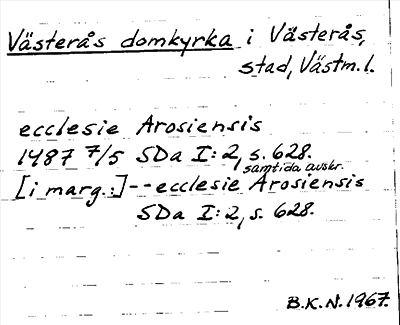 Västerås domkyrka i Västerås,
stad, Västm. l.
ecclesie Arosiensis
1487 7/5 SDa I:2, s. 628.
samtida avskr.
[i marg.:]--ecclesie Arosiensis
SDa I:2, s. 628.
B.K.N. 1967.